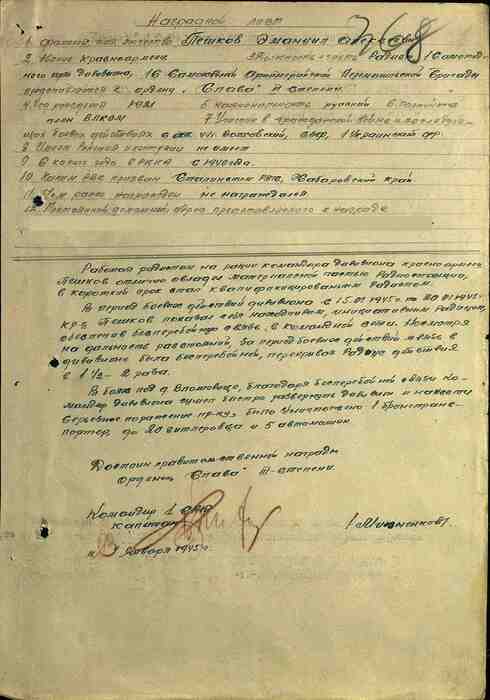 Наградной лист
768
1. Фамилия имя отчество Пешков Эмануил
2. Звание Красноармеец 3. Должность часть Радист 1 Самоход-
ного арт дивизиона, 16 Самоходной Артиллерийской Бригады
представляется к ордену "Слава" III степени.
4. Год рождения 5. национальность русский 6. Партийность
член ВЛКСМ 7. Участие в гражданской войне и последую-
щих боевых действиях с Волховский, 1 Украинский фр.
8. Имеет ли ранения и контузии не имеет
9. С какого года в РККА с 1940 года.
10. Каким РВК призван Сталинским РВК, Хабаровский край.
11. Чем ранее награжден не награждался
12. Постоянный домашний адрес представляемого к награде
Работая радистом на рации командира дивизиона красноармеец
Пешков отлично овладел материальной частью Радиостанции,
в короткий срок стал квалифицированным Радистом.
В период боевых действий дивизиона с 15.01.1945г. по 20.01.1945г.
кр-ц Пешков показал себя находчивым, инициативным Радистом,
обеспечив бесперебойную связь, в командной сети. Несмотря
на дальность расстояний, за период боевых действий связь в
дивизионе была бесперебойной, перекрывая Радиус действия
в 1½ - 2 раза.
В боях под д. благодаря бесперебойной связи Ко-
мандир дивизиона сумел быстро развернуть дивизион и нанести
серьезное поражение пр-ку, было уничтожено 1 бронетранс-
портер, до 20 гитлеровцев и 5 автомашин.
Достоин правительственной награды
Орденом "Слава" III-степени.
Командир 1
капитан
Января 1945г.